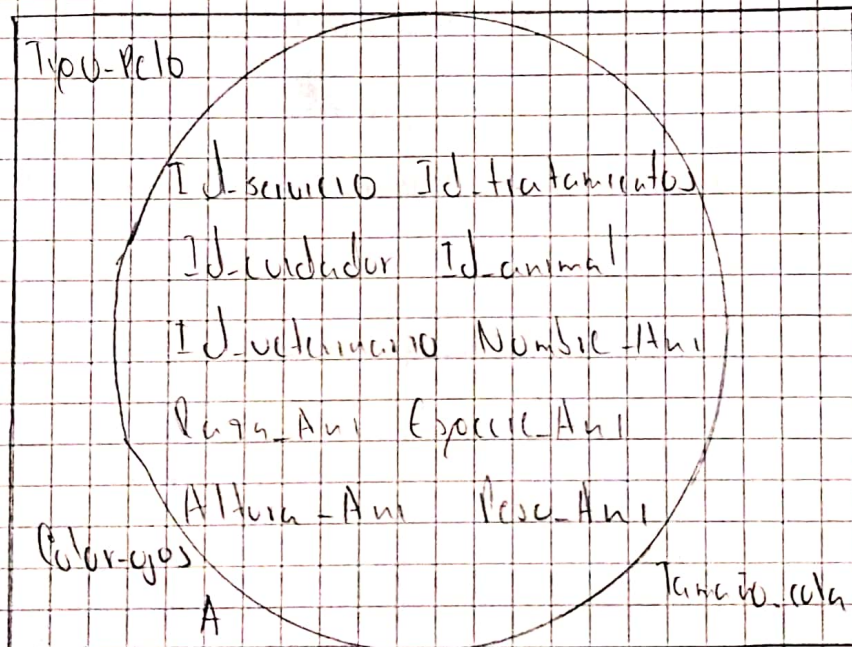 Tipo-Pelo
Id_servicio Id_tratamientos
Id_cuidador Id_animal
Id_veterinario Nombre-Ani
Raza_Ani Especie_Ani
Altura-Ani Peso-Ani
Color-ojos
Tamaño_cola
A